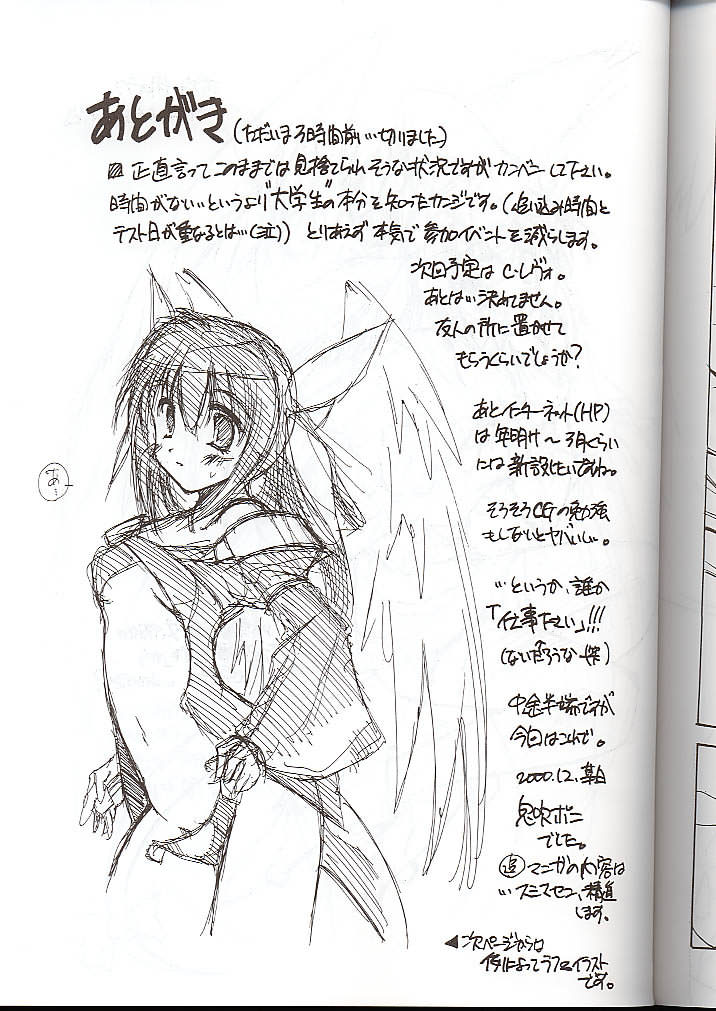 あとがき(ただいま3時間前…切りました)
正直言ってこのままでは見捨てられそうな状況ですがカンベンして下さい。
時間がない…というより"大学生"の本分を知ったカンジです。(追い込み時間と
テスト日が重なるとは…(泣)) とりあえず本気で参加イベントを減らします。
次回予定はC・レヴォ。
あとは…決めてません。
友人の所に置かせて
もらうくらいでしょうか?
あとインターネット(HP)
は年明け〜3月くらい
には新設したいですね。
そろそろCGの勉強
もしないとヤバいし。
…というか、誰か
「仕事下さい」!!!
(ないだろうな 一笑)
中途半端ですが
今回はこれで。
2000.12.某日
鬼吹ポニ
でした。
追 マンガの内容は
…スミマセン、精進
します。
◀次ページからは
例によってラフイラスト
です。
あ…